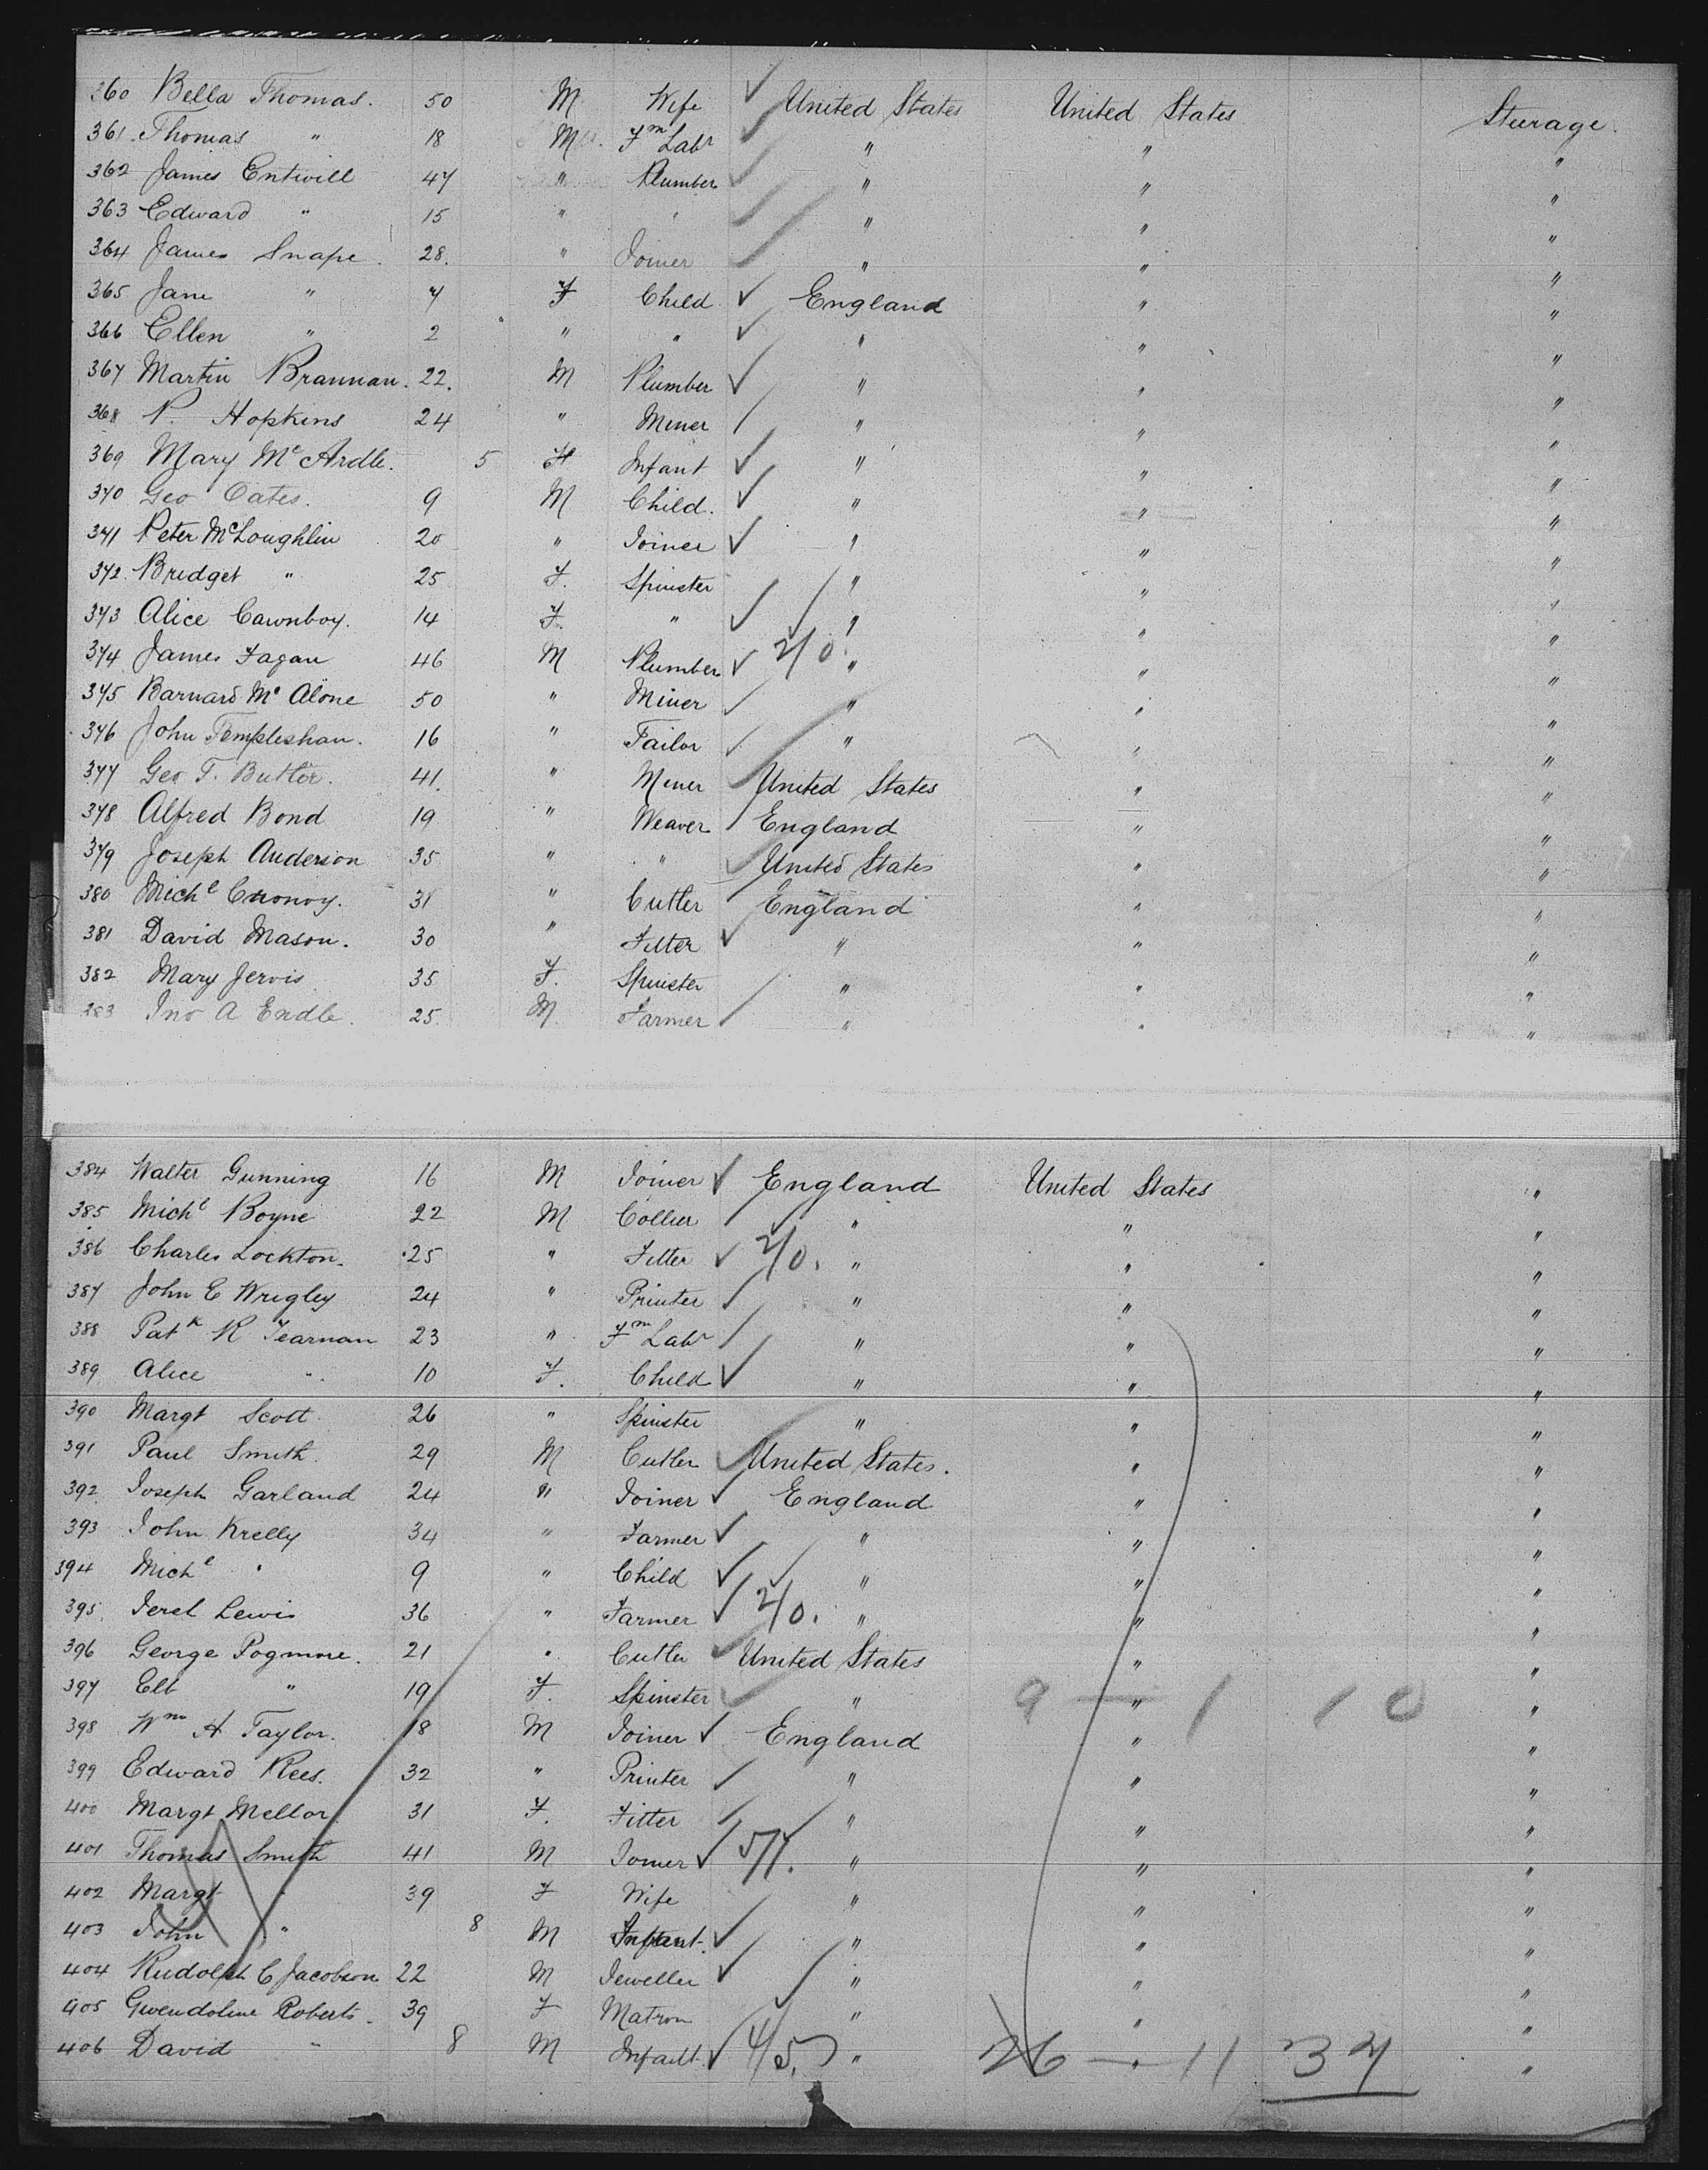 360 Bella Thomas. 50 M Wife United States United States Steerage.
361. Thomas " 18 M Fm Labr " " "
362 James Entwill 47 " Plumber " " "
363 Edward " 15 " " " " "
364 James Snape. 28. " Joiner " " "
365 Jane " 7 F Child England " "
366 Ellen " 2 " " " " "
367 Martin Brannan. 22. M Plumber " " "
368 P. Hopkins 24 " Miner " " "
369 Mary McArdle. 5 F Infant " " "
370 Geo Oates. 9 M Child. " " "
371 Peter McLoughlin 20 " Joiner " " "
372 Bridget " 25 F. Spinster " " "
373 Alice Cawnboy. 14 F. " " " "
374 James Fagan 46 M Plumber 2/0. " " "
375 Barnard Mc Alone 50 " Miner " " "
376 John Templeshan. 16 " Tailor " " "
377 Geo T. Butler. 41. " Miner United States " "
378 Alfred Bond 19 " Weaver England " "
379 Joseph Anderson 35 " " United States " "
380 Michl Cronoy. 31 " Cutler England " "
381 David Mason. 30 " Fitter " " "
382 Mary Jervis 35 F. Spinster " " "
383 Jno A Endle. 25. M Farmer " " "
384 Walter Gunning 16 M Joiner England United States "
385 Michl Boyne 22 M Collier " " "
386 Charles Lockton. 25 " Fitter 2/0. " " "
387 John E Wrigley 24 " Printer " " "
388 Patk K Tearnan 23 " Fm Labr " " "
389 Alice " 10 F. Child " " "
390 Margt Scott 26 " Spinster " " "
391 Paul Smith. 29 M Cutler United States. " "
392 Joseph Garland 24 " Joiner England " "
393 John Krelly 34 " Farmer " " "
394 Michl " 9 " Child " " "
395. Jerel Lewis 36 " Farmer 2/0. " " "
396 George Pogmore. 21 " Cutler United States " "
397 Elb " 19 F. Spinster " 9 — 1 10 " "
398 Wm H Taylor. 18 M Joiner England " "
399 Edward Rees. 32 " Printer " " "
400 Margt Mellor 31 F. Fitter " " "
401 Thomas Smith 41 M Joiner 5/1. " " "
402 Margt " 39 F Wife " " "
403 John " 8 M Infant. " " "
404 Rudolph C Jacobson 22 M Jeweller " " "
405 Gwendoline Roberts. 39 F Matron " " "
406 David " 8 M Infant 4/5. " 26 — 11 37 " "